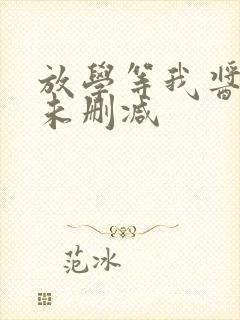 放學等我醬
未刪減
范冰